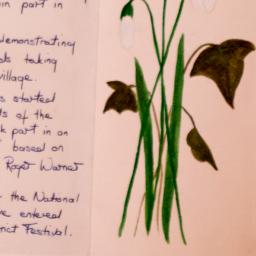 in part in
demonstrating
taking
village.
s started
ds of the
k part in an
based on
Roger Warner
the National
ve entered
Festival.